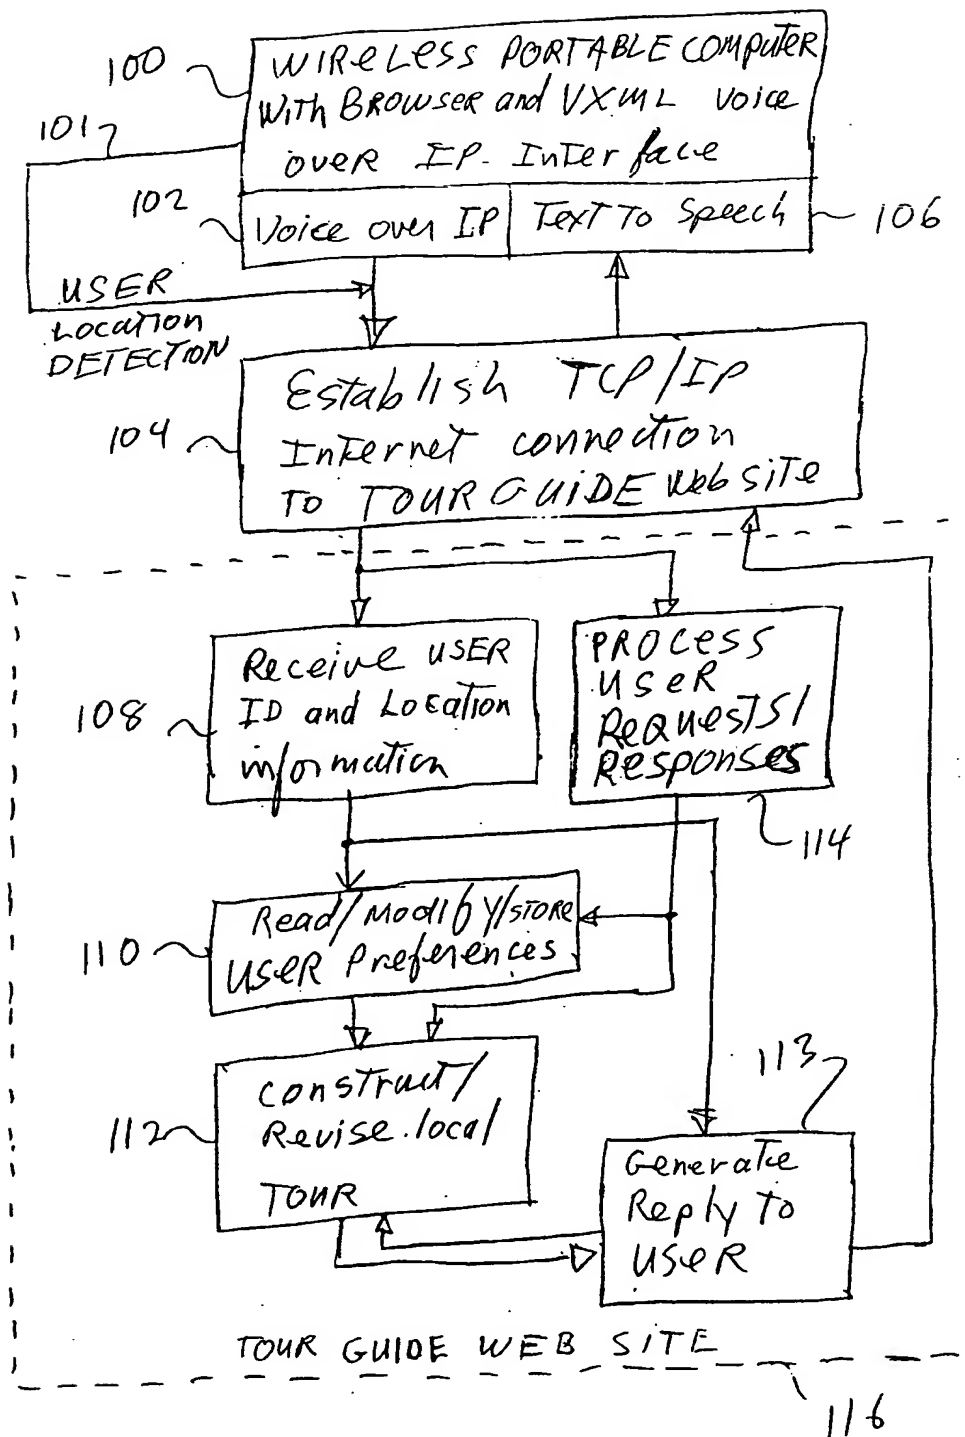 100
WIReLess PORTABLE COMPUTER
With BROWSER and VXML Voice
oveR IP-InTerface
101
102
Voice over IP
Text To Speech
106
USER
Location
DETECTION
104
Establish TCP/IP
Internet connection
To TOUR GUIDE Web siTe
108
Receive USER
ID and Location
information
PROcess
USeR
ReQuesTs/
Responses
114
110
Read/Modify/STORE
USeR Preferences
112
construct/
Revise local
TOUR
113
Generate
Reply To
USeR
TOUR GUIDE WEB SITE
116